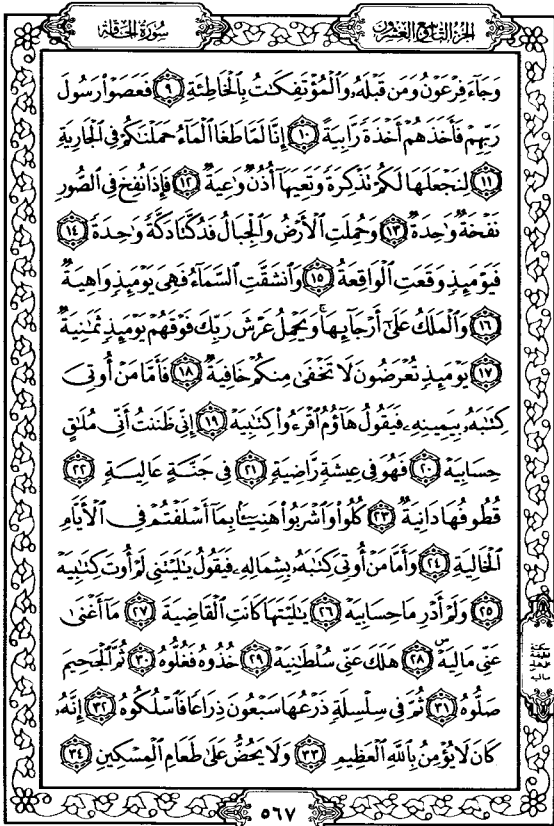 سُورَةُ الْحَاقَّةِ
الجُزءُ التَّاسِعُ وَالعِشْرُونَ
وَجَآءَ فِرْعَوْنُ وَمَن قَبْلَهُۥ وَٱلْمُؤْتَفِكَٰتُ بِٱلْخَاطِئَةِ ٩ فَعَصَوْا۟ رَسُولَ
رَبِّهِمْ فَأَخَذَهُمْ أَخْذَةً رَّابِيَةً ١٠ إِنَّا لَمَّا طَغَا ٱلْمَآءُ حَمَلْنَٰكُمْ فِى ٱلْجَارِيَةِ
١١ لِنَجْعَلَهَا لَكُمْ تَذْكِرَةً وَتَعِيَهَآ أُذُنٌ وَٰعِيَةٌ ١٢ فَإِذَا نُفِخَ فِى ٱلصُّورِ
نَفْخَةٌ وَٰحِدَةٌ ١٣ وَحُمِلَتِ ٱلْأَرْضُ وَٱلْجِبَالُ فَدُكَّتَا دَكَّةً وَٰحِدَةً ١٤
فَيَوْمَئِذٍ وَقَعَتِ ٱلْوَاقِعَةُ ١٥ وَٱنشَقَّتِ ٱلسَّمَآءُ فَهِىَ يَوْمَئِذٍ وَاهِيَةٌ
١٦ وَٱلْمَلَكُ عَلَىٰٓ أَرْجَآئِهَا ۚ وَيَحْمِلُ عَرْشَ رَبِّكَ فَوْقَهُمْ يَوْمَئِذٍ ثَمَٰنِيَةٌ
١٧ يَوْمَئِذٍ تُعْرَضُونَ لَا تَخْفَىٰ مِنكُمْ خَافِيَةٌ ١٨ فَأَمَّا مَنْ أُوتِىَ
كِتَٰبَهُۥ بِيَمِينِهِۦ فَيَقُولُ هَآؤُمُ ٱقْرَءُوا۟ كِتَٰبِيَهْ ١٩ إِنِّى ظَنَنتُ أَنِّى مُلَٰقٍ
حِسَابِيَهْ ٢٠ فَهُوَ فِى عِيشَةٍ رَّاضِيَةٍ ٢١ فِى جَنَّةٍ عَالِيَةٍ ٢٢
قُطُوفُهَا دَانِيَةٌ ٢٣ كُلُوا۟ وَٱشْرَبُوا۟ هَنِيٓـًٔۢا بِمَآ أَسْلَفْتُمْ فِى ٱلْأَيَّامِ
ٱلْخَالِيَةِ ٢٤ وَأَمَّا مَنْ أُوتِىَ كِتَٰبَهُۥ بِشِمَالِهِۦ فَيَقُولُ يَٰلَيْتَنِى لَمْ أُوتَ كِتَٰبِيَهْ
٢٥ وَلَمْ أَدْرِ مَا حِسَابِيَهْ ٢٦ يَٰلَيْتَهَا كَانَتِ ٱلْقَاضِيَةَ ٢٧ مَآ أَغْنَىٰ
عَنِّى مَالِيَهْ ۜ ٢٨ هَلَكَ عَنِّى سُلْطَٰنِيَهْ ٢٩ خُذُوهُ فَغُلُّوهُ ٣٠ ثُمَّ ٱلْجَحِيمَ
صَلُّوهُ ٣١ ثُمَّ فِى سِلْسِلَةٍ ذَرْعُهَا سَبْعُونَ ذِرَاعًا فَٱسْلُكُوهُ ٣٢ إِنَّهُۥ
كَانَ لَا يُؤْمِنُ بِٱللَّهِ ٱلْعَظِيمِ ٣٣ وَلَا يَحُضُّ عَلَىٰ طَعَامِ ٱلْمِسْكِينِ ٣٤
سكتة
لطيفة
على هاء
ماليه
٥٦٧